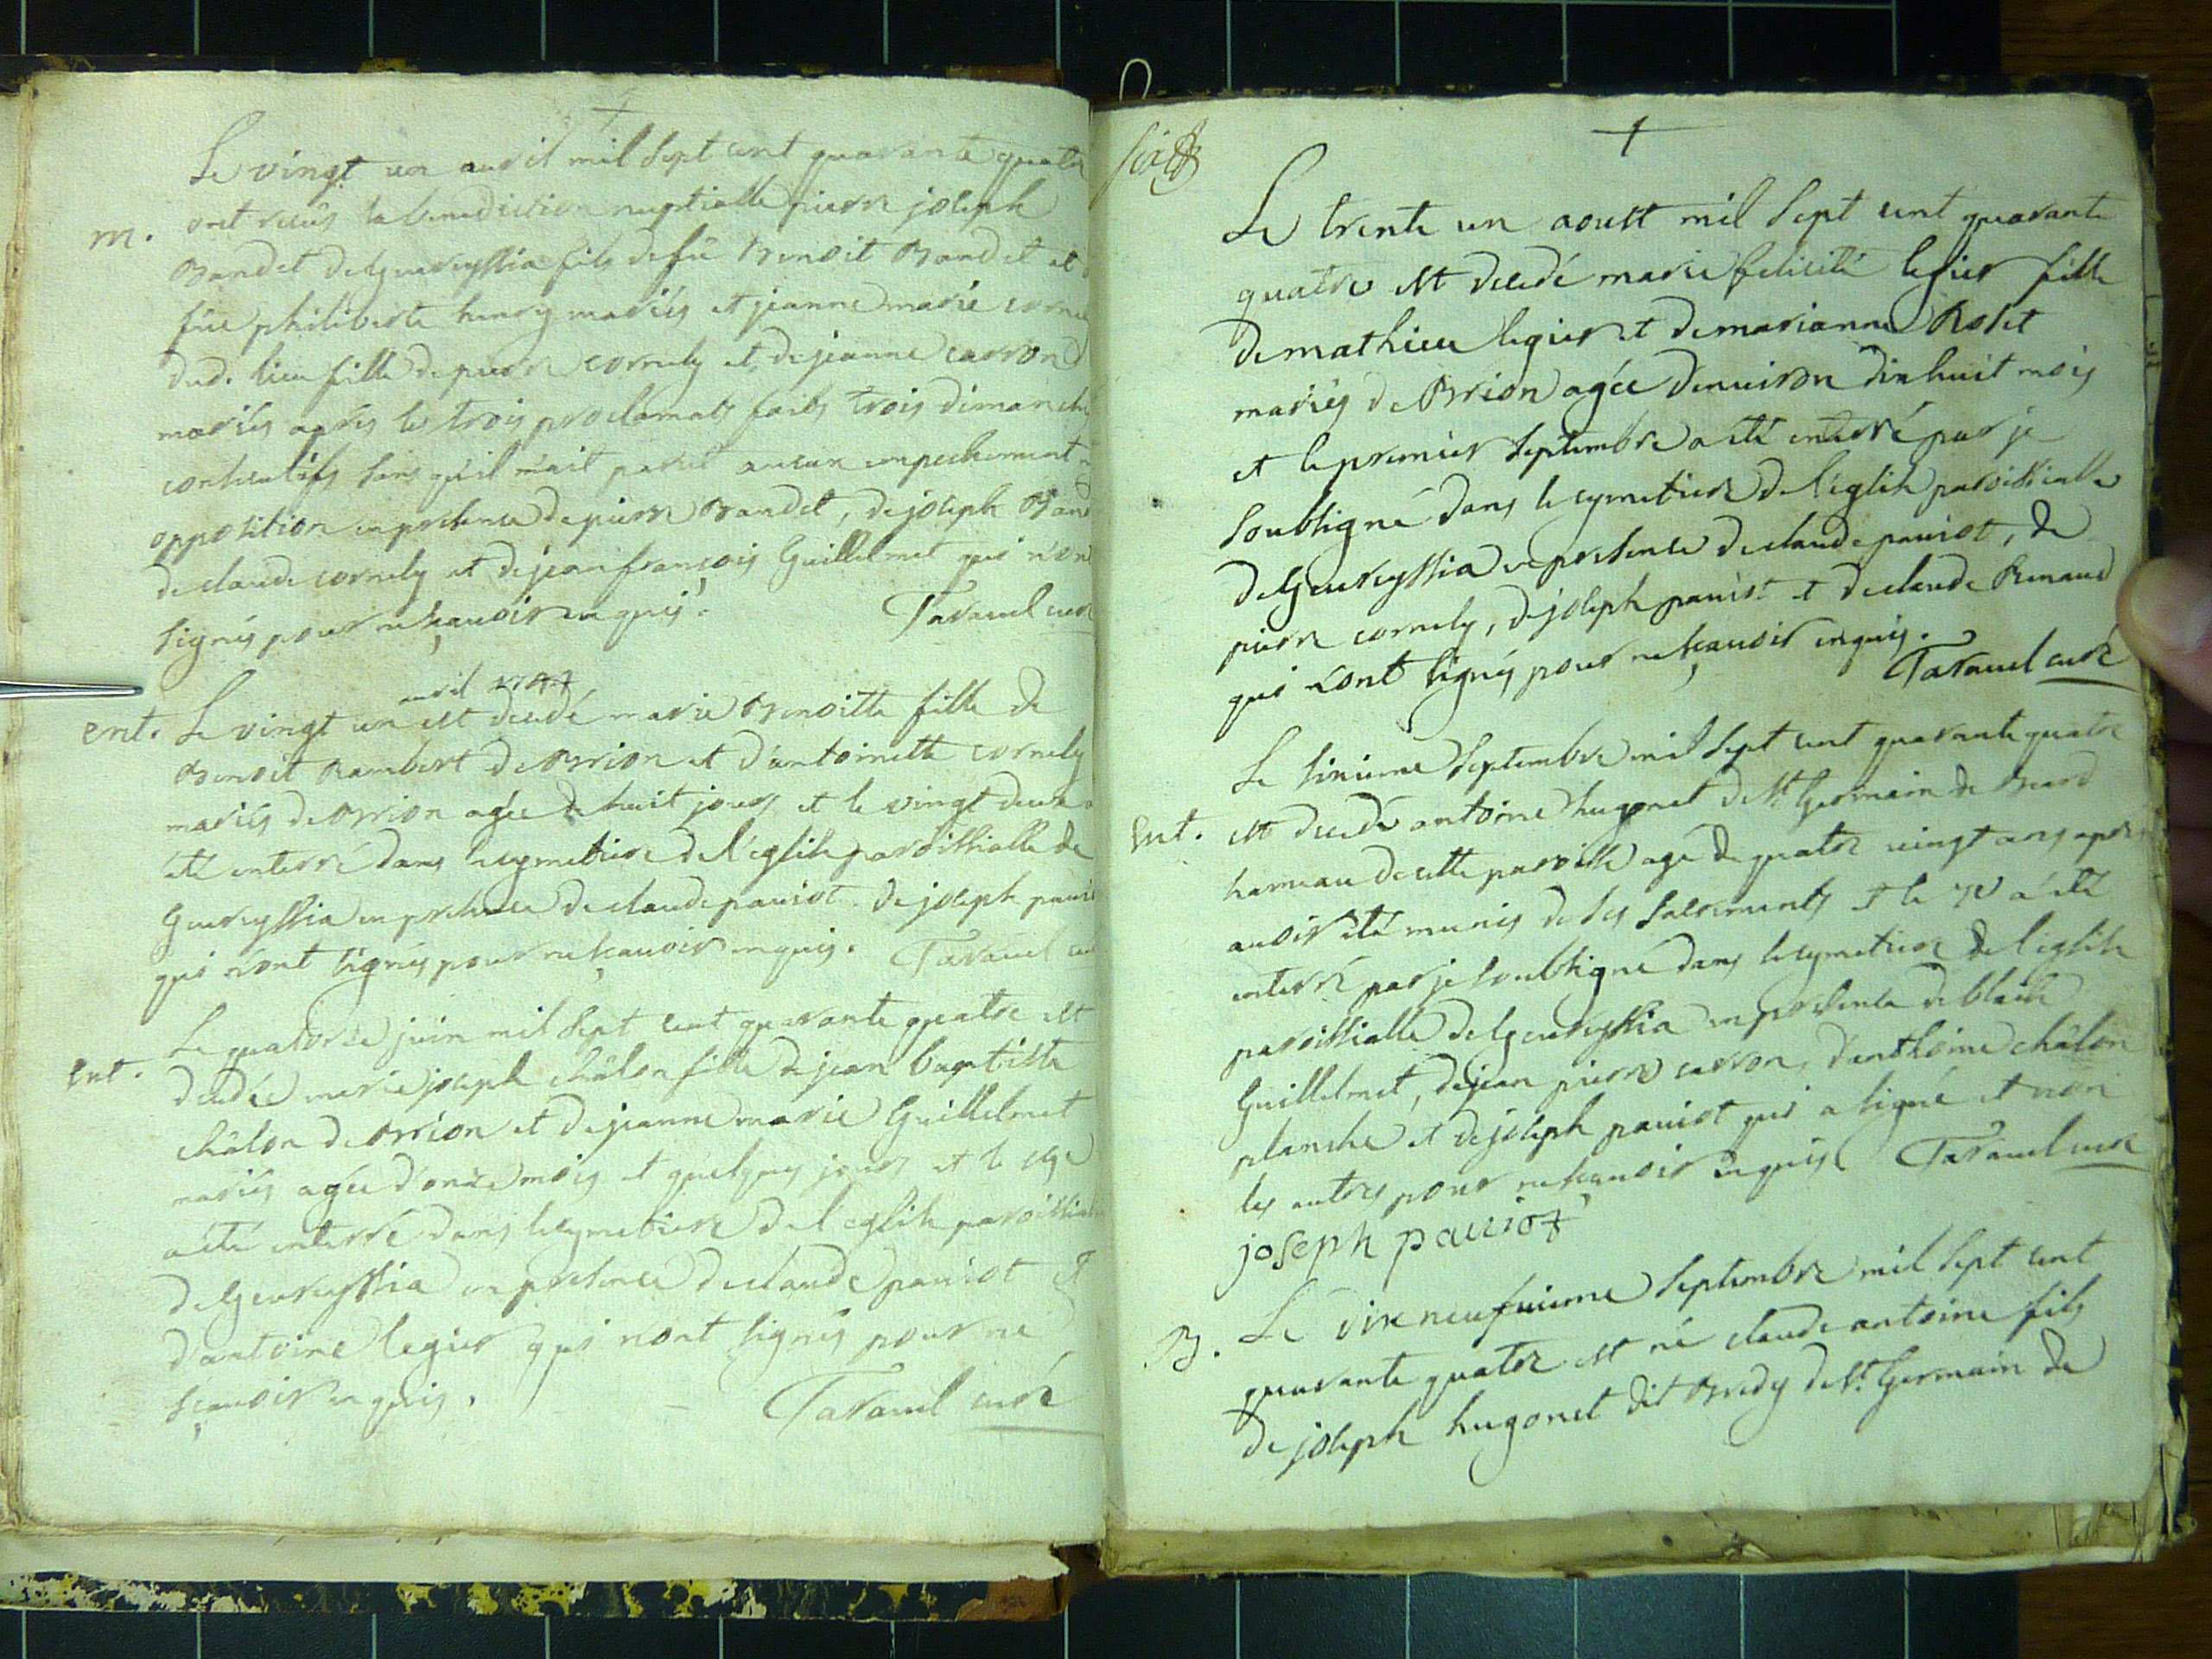 Le vingt un avril mil sept cent quarante quatre
ont reçus la benediction nuptialle pierre joseph
m.
Bandet de Geureyssia fils de fû Benoit Bandet et
fûe philiberte henry mariés et jeanne marie corne
dud. lieu fille de pierre cornely et de jeanne carron
mariés après les trois proclamats faits trois dimanch
consecutifs sans qu'il n'ait paru aucun empechement n
opposition en presence de pierre Bandet, de joseph Ban
de claude cornely et de jean françois Guillelmet qui n'on
signés pour ne sçavoir enquis. Taravel curé
avril 1744
ent. Le vingt un est decedé marie Benoitte fille de
Benoit Rambert de Brion et d'antoinette cornely
mariés de Brion agée de huit jours et le vingt deux a
été enterré dans le cymetiere de l'eglise paroissialle de
Geureyssia en presence de claude pauiot. de joseph paui
qui n'ont signés pour ne sçavoir enquis. Taravel cu
Le quatorze juin mil sept cent quarante quatre est
Ent.
decedée marie joseph châlon fille de jean baptiste
châlon de Brion et de jeanne marie Guillelmet
mariés agée d'onze mois et quelques jours et le
a été enterré dans le cymetiere de l'eglise paroissial
de Geureyssia en presence de claude pauiot et
d'antoine legier qui n'ont signés pour ne
sçavoir enquis. Taravel curé
Le trente un aoust mil sept cent quarante
quatre est decedé marie felicité legier fille
de mathieu legier et de marianne Rolet
mariés de Brion agée d'enuiron dix huit mois
et le premier septembre a été enterré par je
soubsigné dans le cymetiere de l'eglise paroissialle
de Geureyssia en presence de claude pauiot, de
pierre cornely, de joseph pauiot et de claude Renaud
qui n'ont signés pour ne sçavoir enquis.
Taravel curé
Le sixieme septembre mil sept cent quarante quatre
Ent. est decedé antoine hugonet de St Germain de Beard
hameau de cette paroisse agé de quatre vingt ans apres
auoir été munis de ses sacrements et le 7e a été
enterré par je soubsigné dans le cymetiere de l'eglise
paroissialle de Geureyssia en presence de blaise
Guillelmet, de jean pierre carron, d'anthoine châlon
planche et de joseph pauiot qui a signé et non
les autres pour ne sçavoir enquis Taravel curé
joseph pauiot
B. Le dix neufuieme septembre mil sept cent
quarante quatre est né claude antoine fils
de joseph hugonet dit Bredy de St Germain de